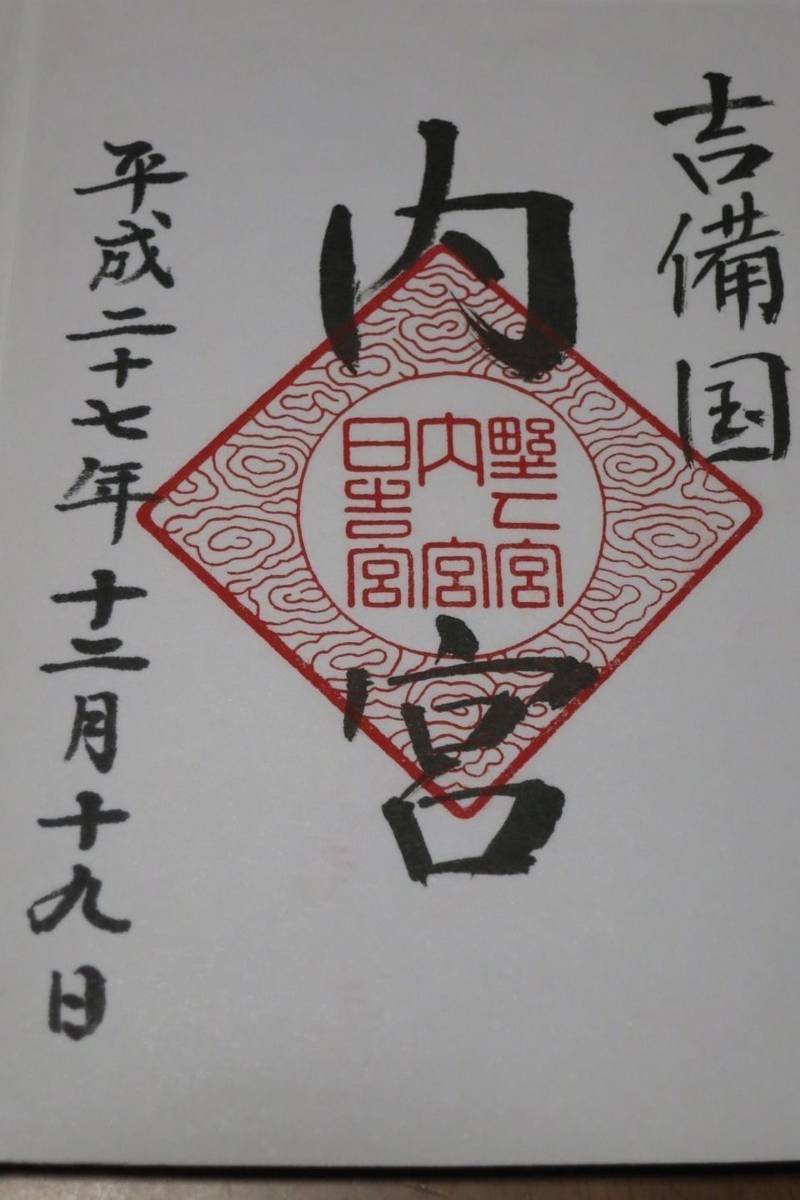 吉備国
内宮
内宮
日吉宮
平成二十七年十二月十九日